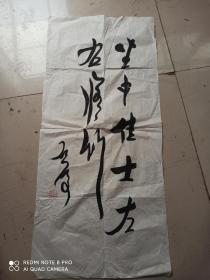 坐中佳士左
右修竹
REDMI NOTE 8 PRO
AI QUAD CAMERA